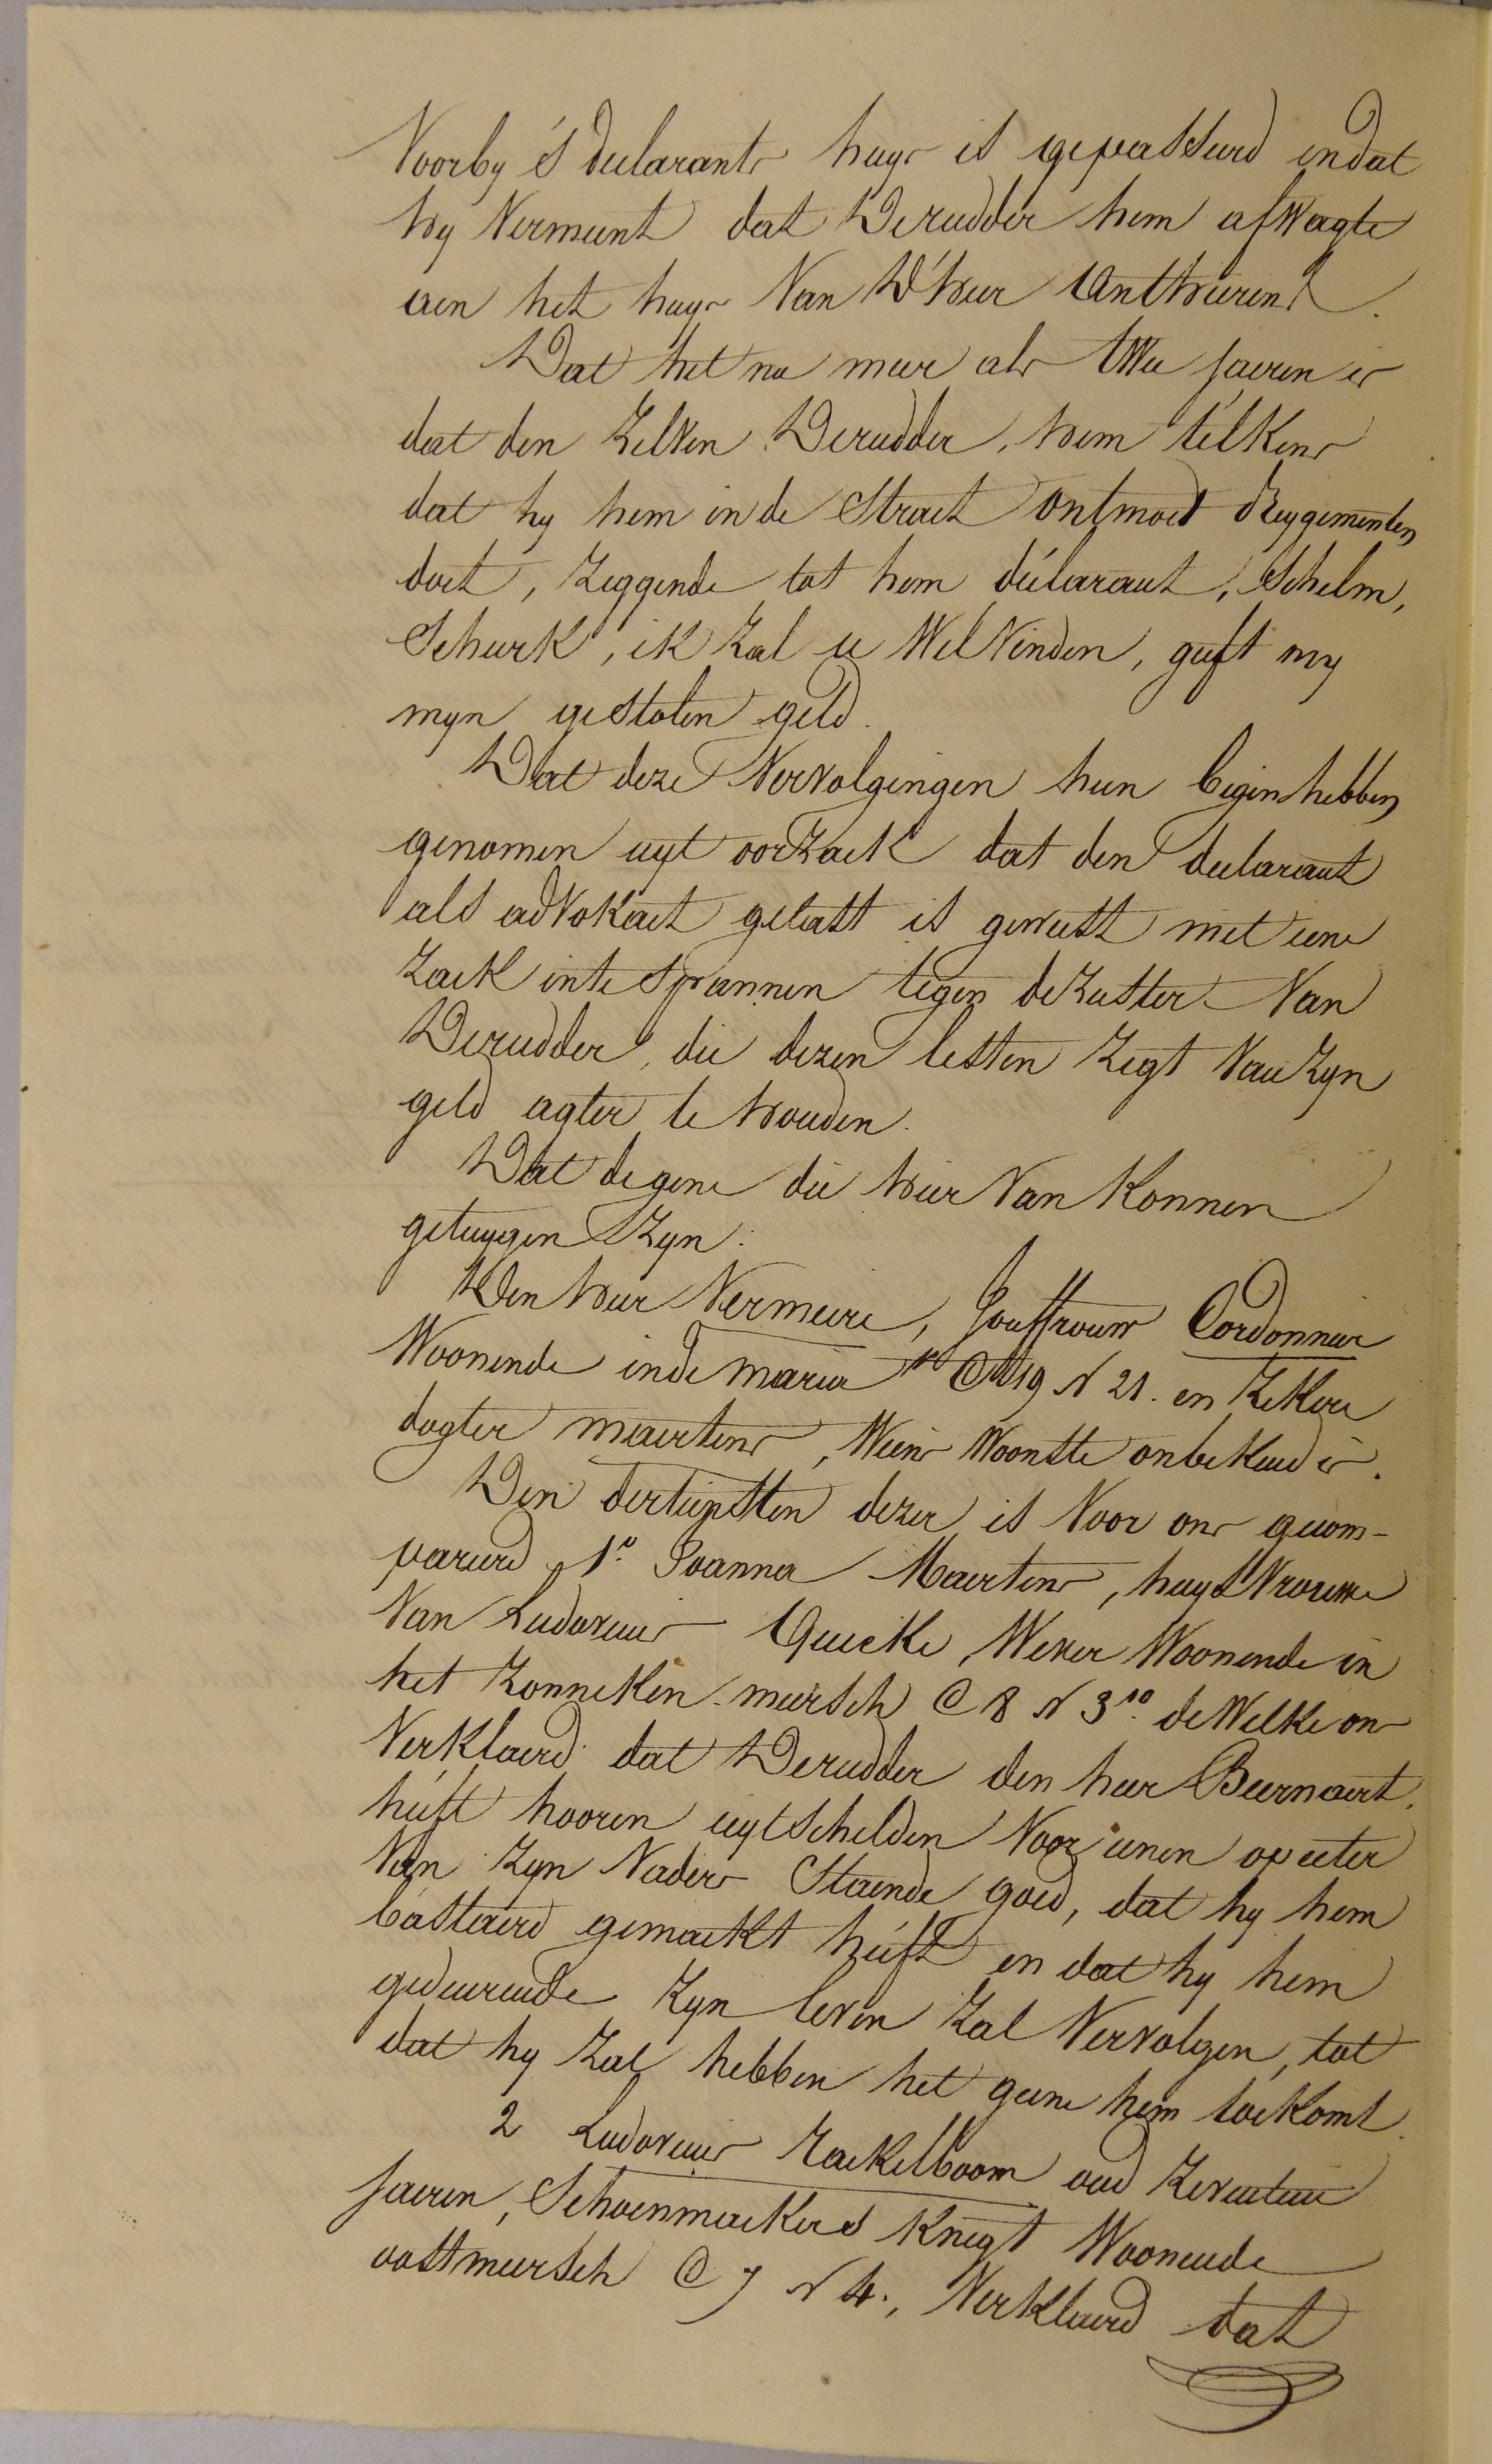 Voorby 's declarants huys is gepasseerd en dat
hy Vermeent dat Derudder hem afwagte
aen het huys Van D'heer Antheunis.
Dat het nu meer als twee Jaeren is
dat den Zelven Derudder, hem telkens
dat hy hem in de Straet ontmoet dreygementen
doet, Zeggende tot hem déclarant, Schelm,
Schurk, ik Zal u Wel Vinden, geeft my
myn gestolen geld.
Dat deze Vervolgingen hun begin hebben
genomen uyt oorzaek dat den declarant
als advokaet gelast is geweest met eene
Zaek in te Spannen tegen de Zuster Van
Derudder, die dezen lesten Zegt Van Zyn
geld agter te houden.
Dat de gene die hier Van Konnen
getuygen Zyn:
Den heer Vermeire, Jouffrouw Cordonnier
Woonende in de maria st C 19 N 21. en Zekere
dogter maertens, Wiens Woonste onbekend is.
Den dertienstten dezer is Voor ons gecom-
pareerd 1° Joanna Maertens, huysVrouwe
Van Ludovicus Quicke, Wever Woonende in
het Zonneken meersch C 8 N 3 10. de Welke ons
Verklaerd dat Derudder den heer Beernaert.
heéft hooren uytschelden Voor eenen op eeter
Van Zyn Vaders Staende goed, dat hy hem
bastaerd gemaekt heéft en dat hy hem
gedeurende Zyn leven Zal Vervolgen, tot
dat hy Zal hebben het geene hem toekomt.
2 Ludovicus Raekelboom oud Zeventien
Jaeren, Schoenmaekers Knegt Woonende
oostmeersch C 7 N 4., Verklaerd dat